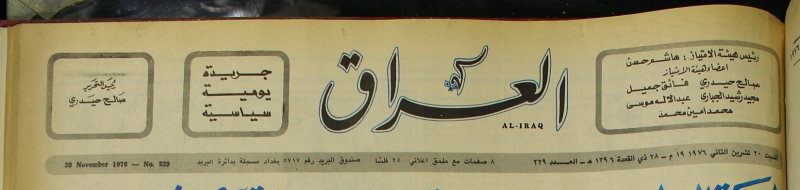 رئيس هيئة الامتياز: هاشم حسن
اعضاء هيئة الامتياز
صالح حيدري فائق جميل
مجيد رشيد الجباري عبدالاله موسى
محمد امين محمد
العراق
AL-IRAQ
جريدة
يومية
سياسية
صالح حيدري
السبت ٢٠ تشرين الثاني ١٩٧٦ م - ٢٨ ذي القعدة ١٣٩٦ هـ - العدد ٢٢٩
٨ صفحات مع ملحق اعلاني ٢٥ فلسا
صندوق البريد رقم ٥٧١٧ بغداد مسجلة بدائرة البريد
20 November 1976 — No. 229